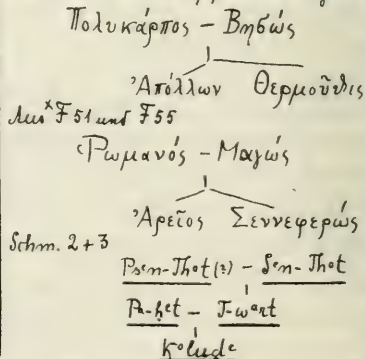 Πολυκάρπος – Βησώς
Ἀπόλλων Θερμοῦθις
Aus *F 51 und F 55
Ῥωμανός – Μαγώς
Ἀρεῖος Σεννεφερώς
Schm. 2 + 3
Psen-Thot (?) – Sen-Thot
Pa-ḥet – T-wart
Kolude